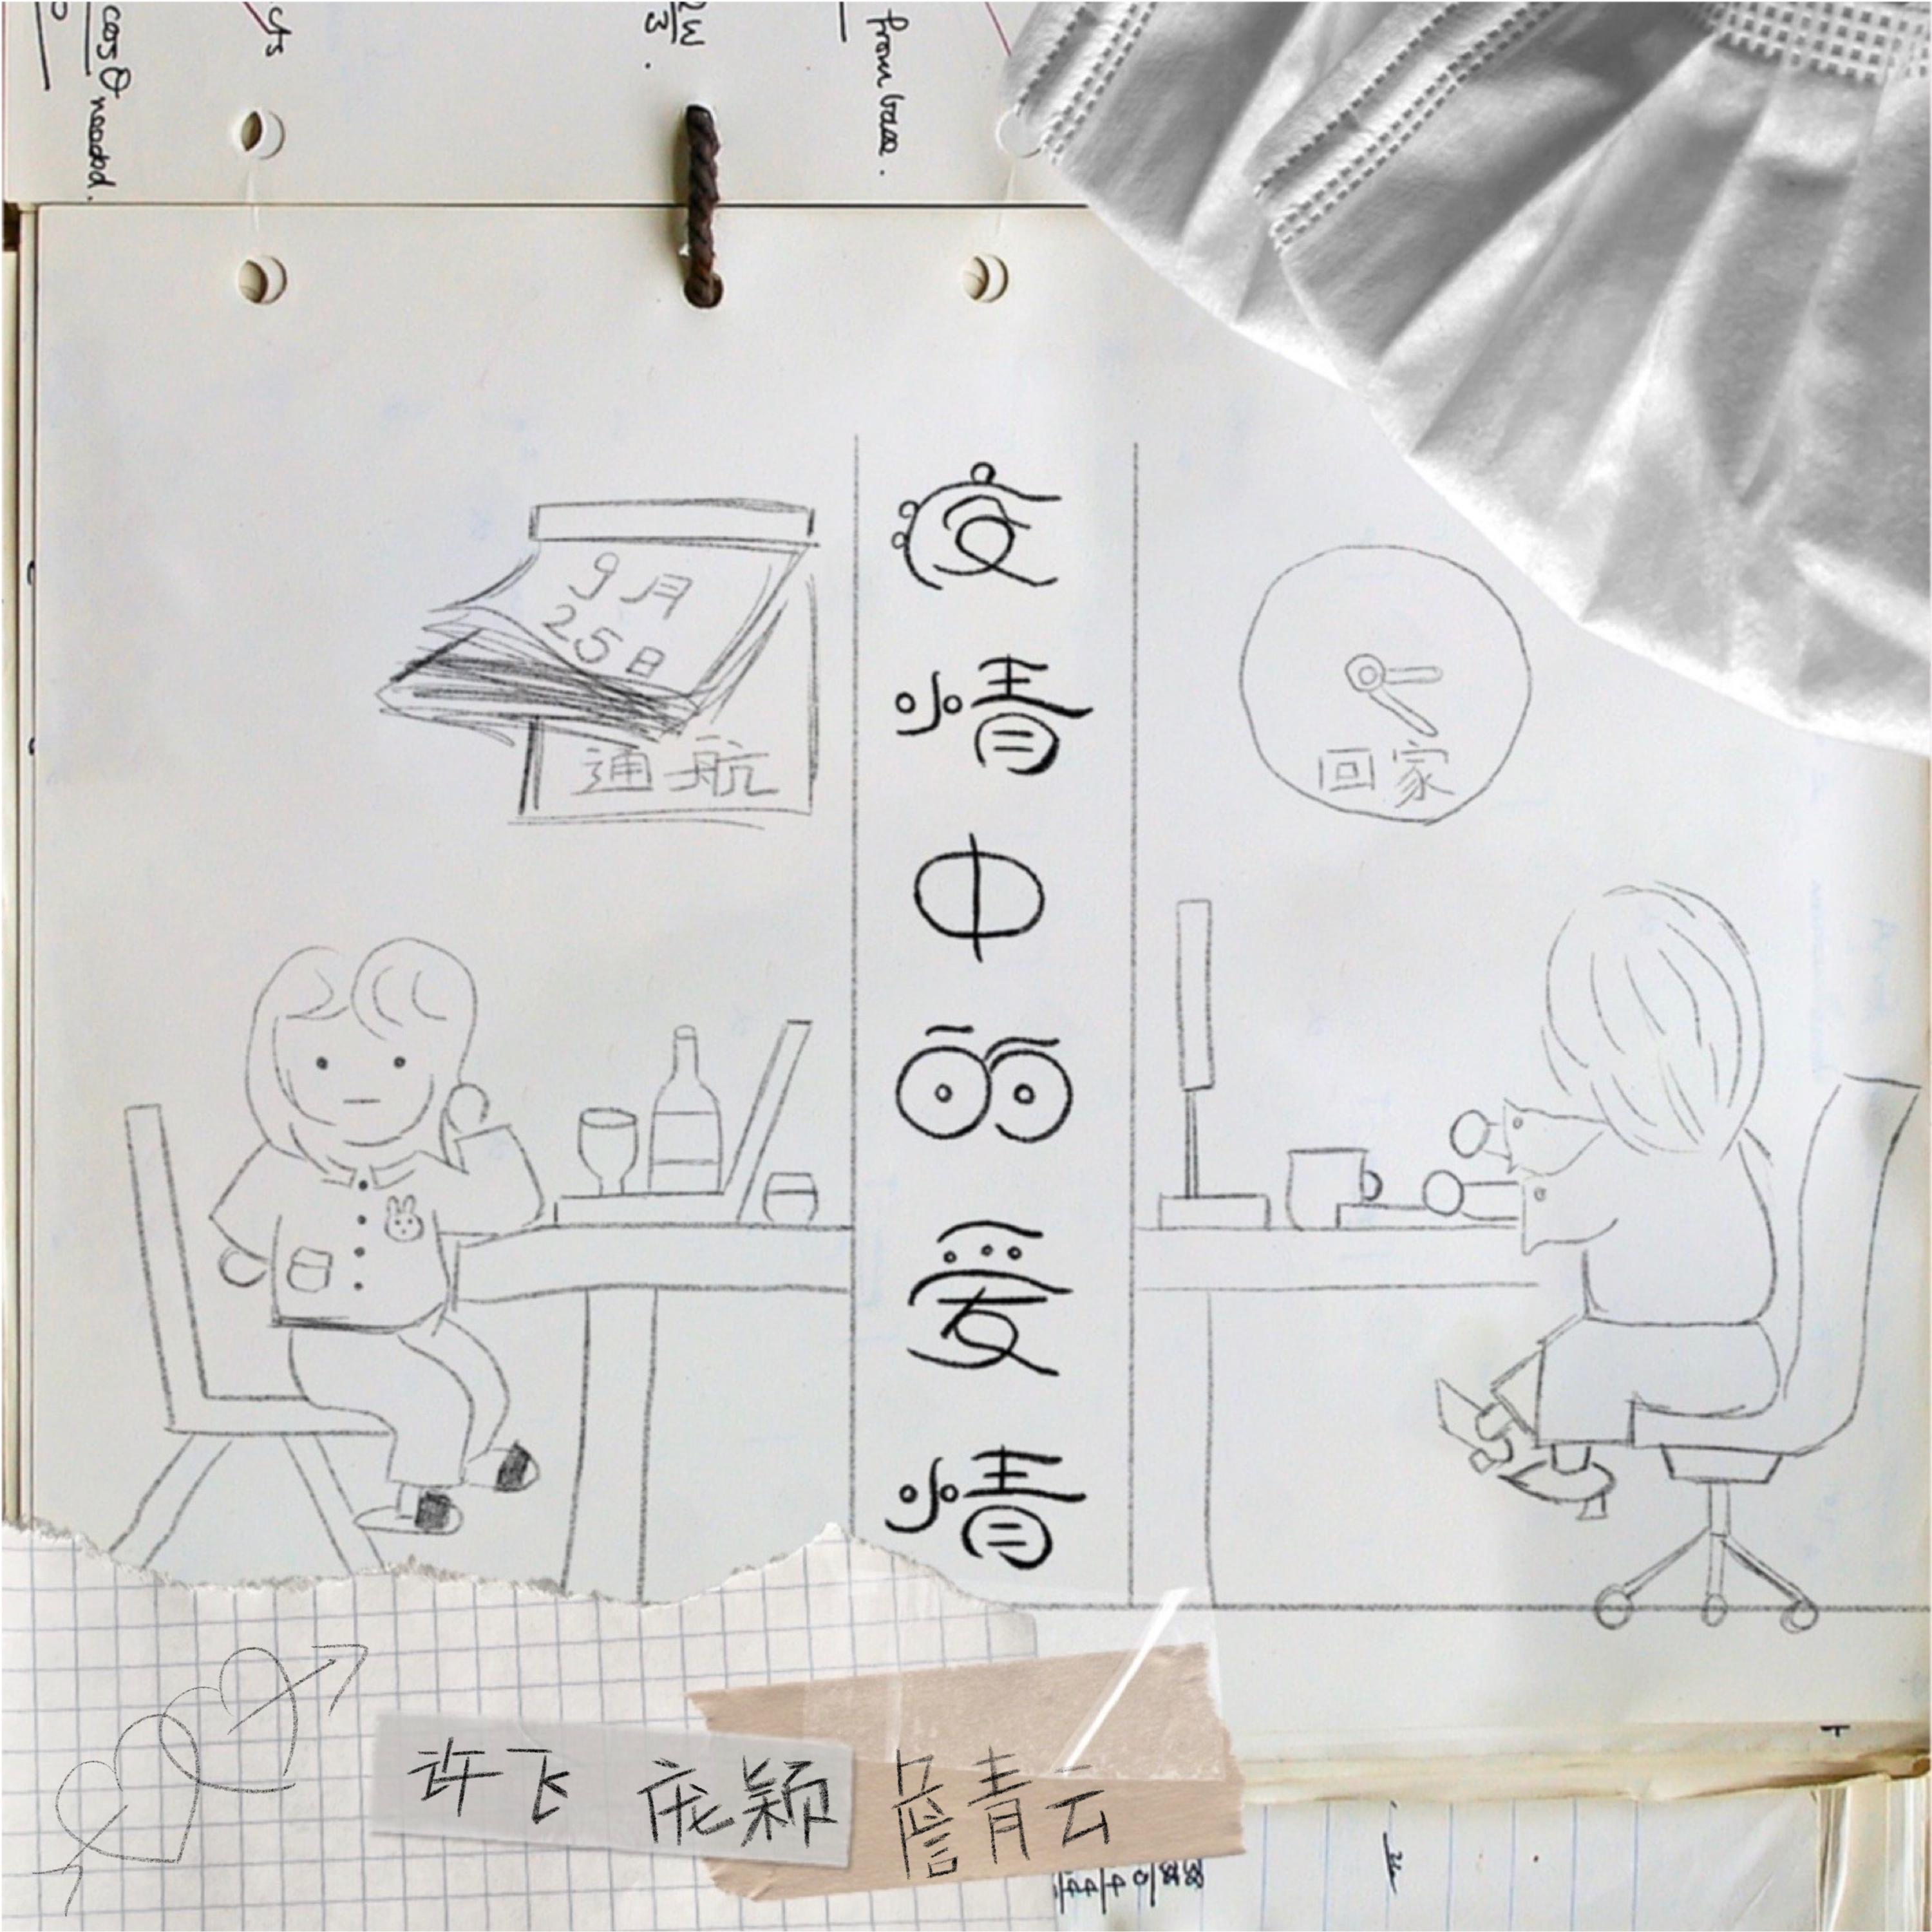 cosθ needed.
cts
2W/3.
from base.
疫情中的爱情
9月
25日
通航
回家
许飞 庞颖 詹青云